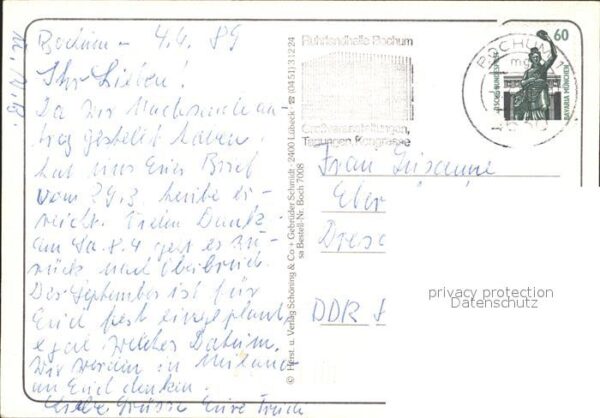 Bochum - 4.4.89
Ihr Lieben!
Da wir Nachsendean-
trag gestellt haben
hat uns Euer Brief
vom 29.3. heute er-
reicht. Vielen Dank.
am Sa. 8.4 geht es zu-
rück und
Der September ist für
Euch fest eingeplant
egal welches Datum.
Wir werden in
an Euch denken.
Liebe Grüsse Eure
© Herst. u. Verlag Schöning & Co + Gebrüder Schmidt · 2400 Lübeck ☎ (0451) 31224
sa Bestell-Nr. Boch 7008
Ruhrlandhalle Bochum
Großveranstaltungen,
Tagungen, Kongresse
BOCHUM 1
60
DEUTSCHE BUNDESPOST
BAVARIA MÜNCHEN
Frau Susanne
Eber
Dresd
DDR
privacy protection
Datenschutz